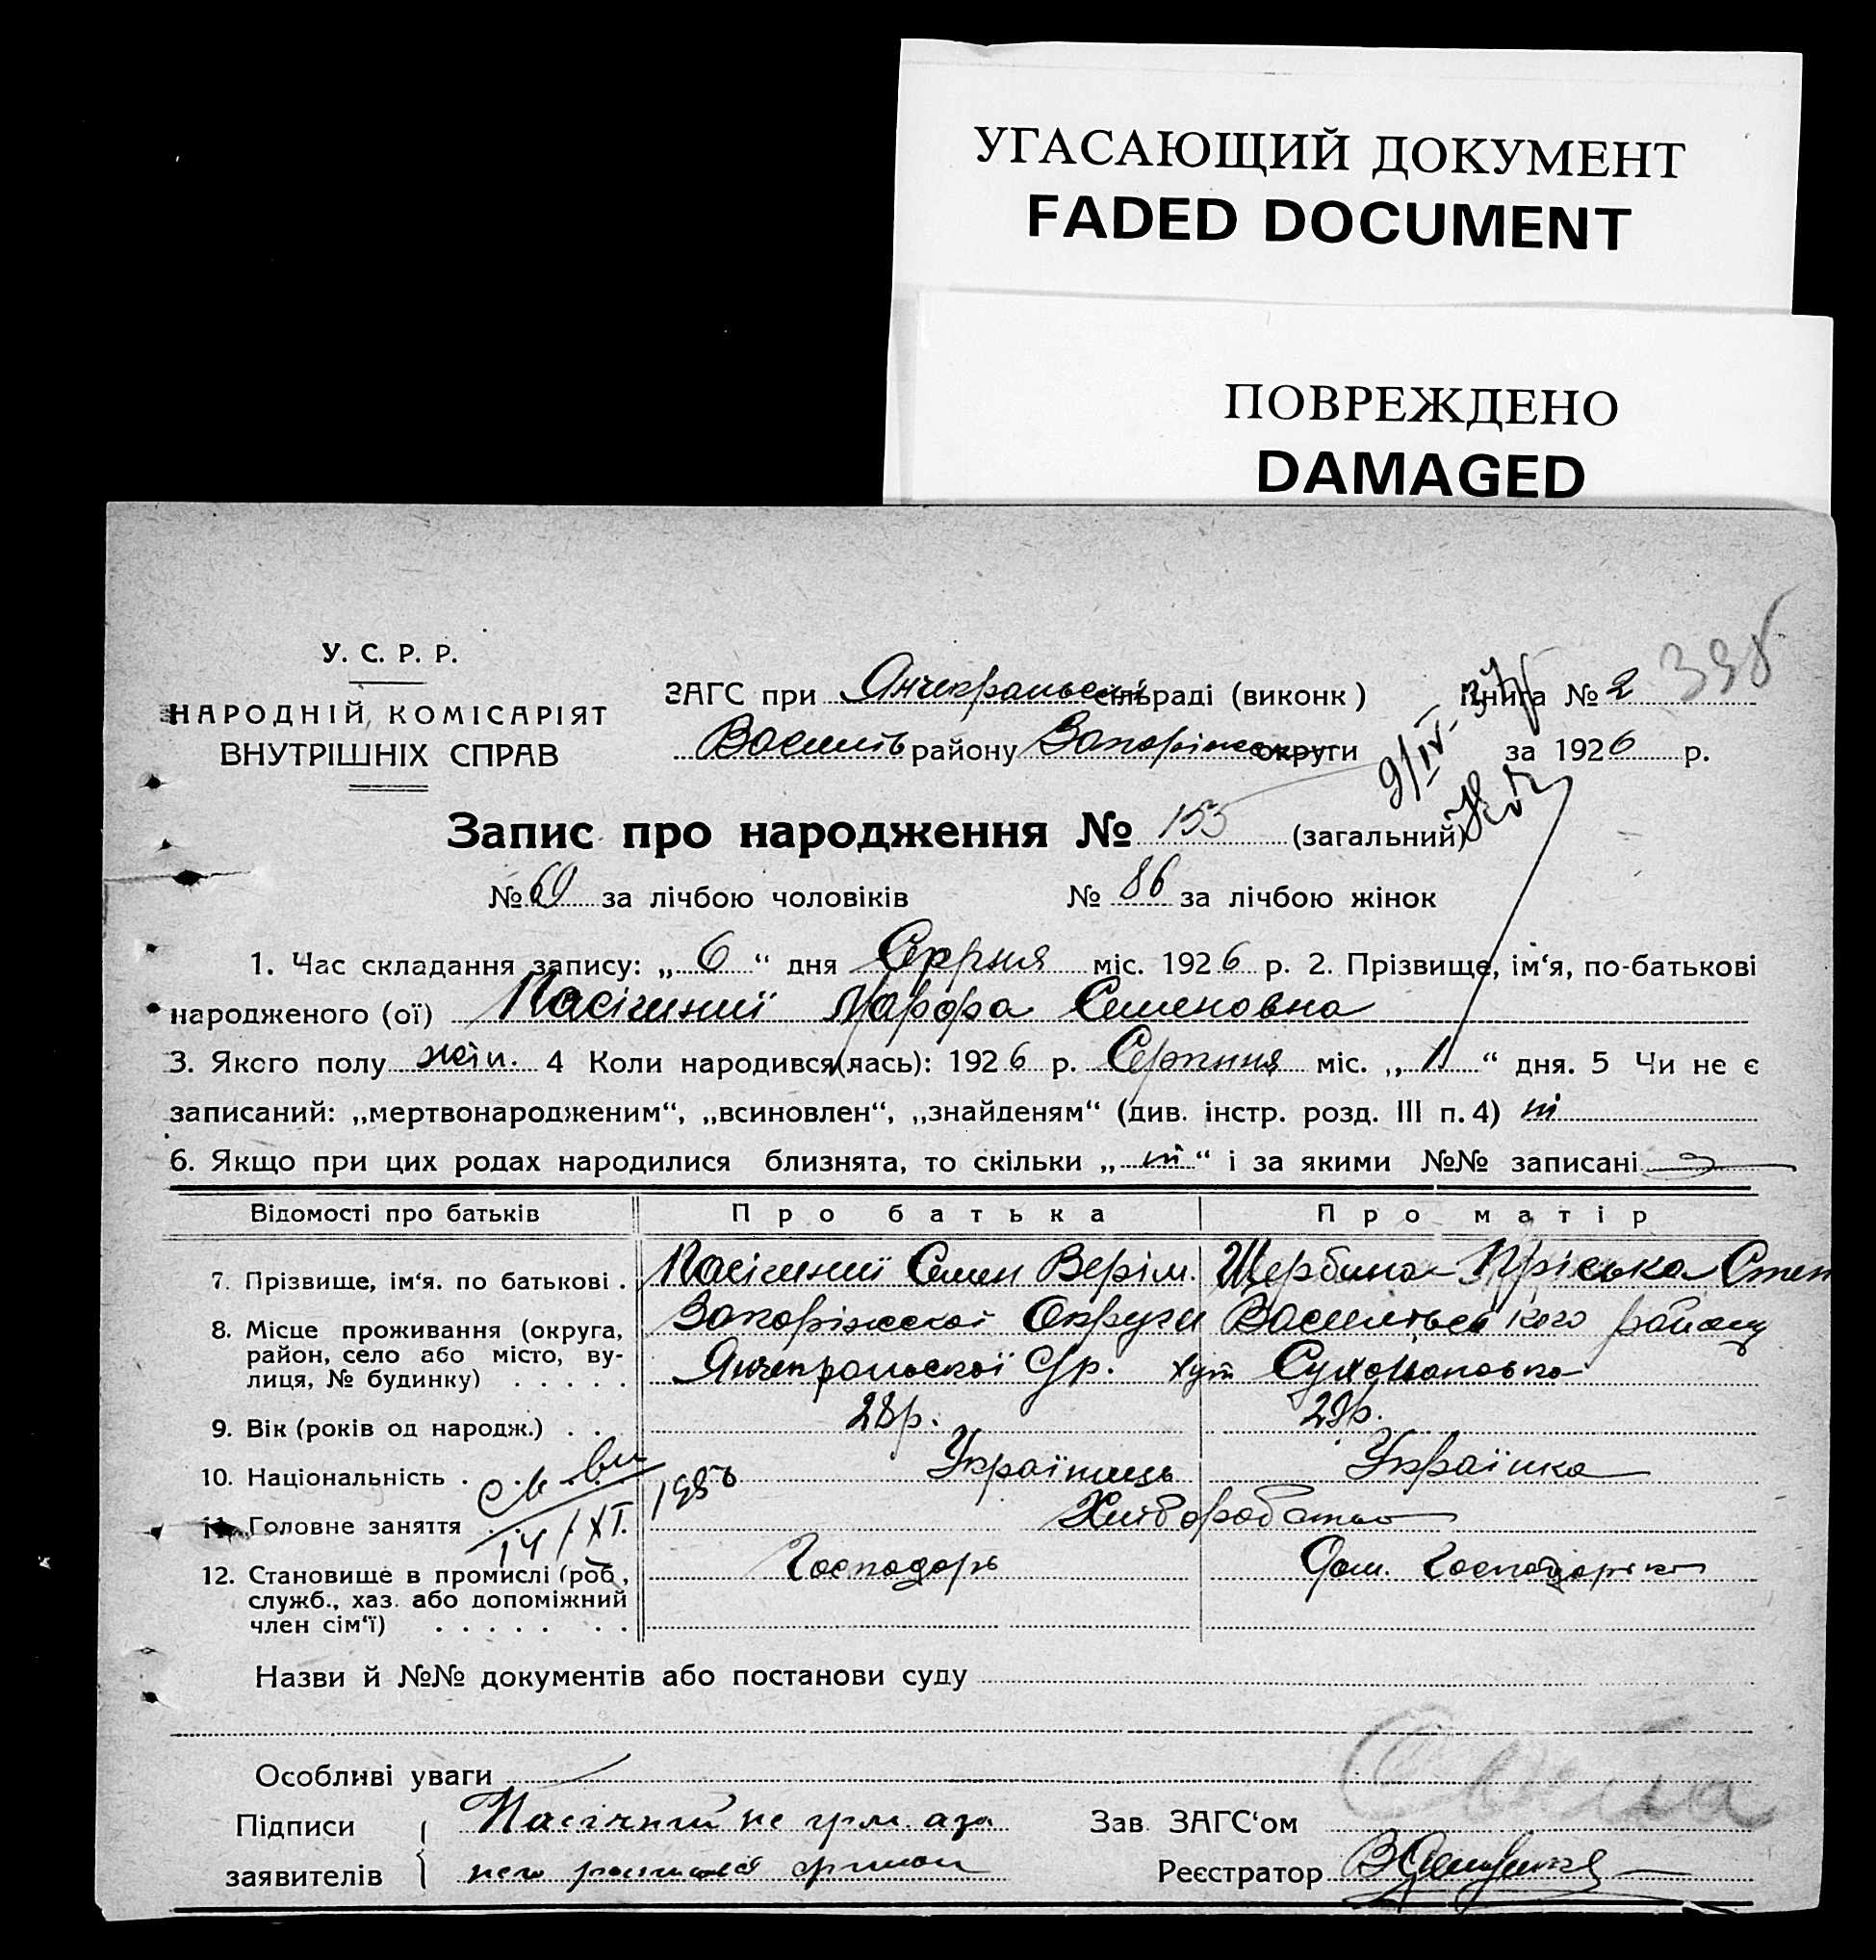 УГАСАЮЩИЙ ДОКУМЕНТ
FADED DOCUMENT
ПОВРЕЖДЕНО
DAMAGED
У. С. Р. Р.
НАРОДНІЙ КОМІСАРІЯТ
ВНУТРІШНІХ СПРАВ
ЗАГС при Янчекральскій сільраді (виконк) Книга № 2
Василів району Запоріжс округи за 1926 р.
Запис про народження № 155 (загальний)
№ 69 за лічбою чоловіків № 86 за лічбою жінок
1. Час складання запису: „ 6 “ дня Серпня міс. 1926 р. 2. Прізвище, ім‘я, по-батькові
народженого (ої) Пасічний Марфа Семеновна
3. Якого полу жін. 4 Коли народився(лась): 1926 р. Серпння міс. „ 1 “ дня. 5 Чи не є
записаний: „мертвонародженим“, „всиновлен“, „знайденям“ (див. інстр. розд. III п. 4) ні
6. Якщо при цих родах народилися близнята, то скільки „ ні “ і за якими №№ записані
Відомості про батьків Про батька Про матір
7. Прізвище, ім‘я. по батькові . Пасічний Семен Верім. Щербина Пріська Степ
8. Місце проживання (округа, Запоріжскої Округи Василівського району
район, село або місто, ву-
лиця, № будинку) . . . . . Янчекральскої С/р. хут Сухоивановка
9. Вік (років од народж.) . . 28р. 28р.
10. Національність . Українець Українка
11. Головне заняття Хліборобство
14/XI.
12. Становище в промислі (роб, Господарь Дом. Господарка
служб., хаз. або допоміжний
член сім‘ї) . . . . . . .
Назви й №№ документів або постанови суду
Особливі уваги
Підписи Пасічний не грм. а за Зав. ЗАГС‘ом
заявителів Реєстратор